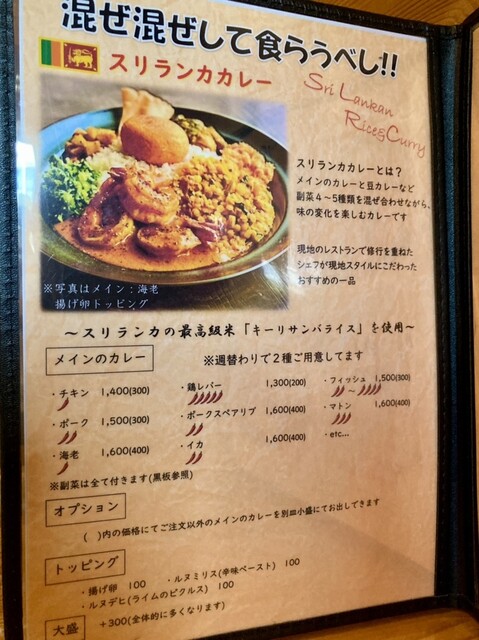 混ぜ混ぜして食らうべし!!
スリランカカレー
Sri Lankan
Rice&Curry
スリランカカレーとは?
メインのカレーと豆カレーなど
副菜4~5種類を混ぜ合わせながら、
味の変化を楽しむカレーです
現地のレストランで修行を重ねた
シェフが現地スタイルにこだわった
おすすめの一品
※写真はメイン:海老
揚げ卵トッピング
~スリランカの最高級米「キーリサンバライス」を使用~
メインのカレー ※週替わりで2種ご用意してます
・チキン 1,400(300) ・鶏レバー 1,300(200) ・フィッシュ 1,500(300)
~
・ポーク 1,500(300) ・ポークスペアリブ 1,600(400) ・マトン 1,600(400)
・海老 1,600(400) ・イカ 1,600(400) ・etc...
※副菜は全て付きます(黒板参照)
オプション
( )内の価格にてご注文以外のメインのカレーを別皿小盛にてお出しできます
トッピング
・揚げ卵 100 ・ルヌミリス(辛味ペースト) 100
・ルヌデヒ(ライムのピクルス) 100
大盛 +300(全体的に多くなります)